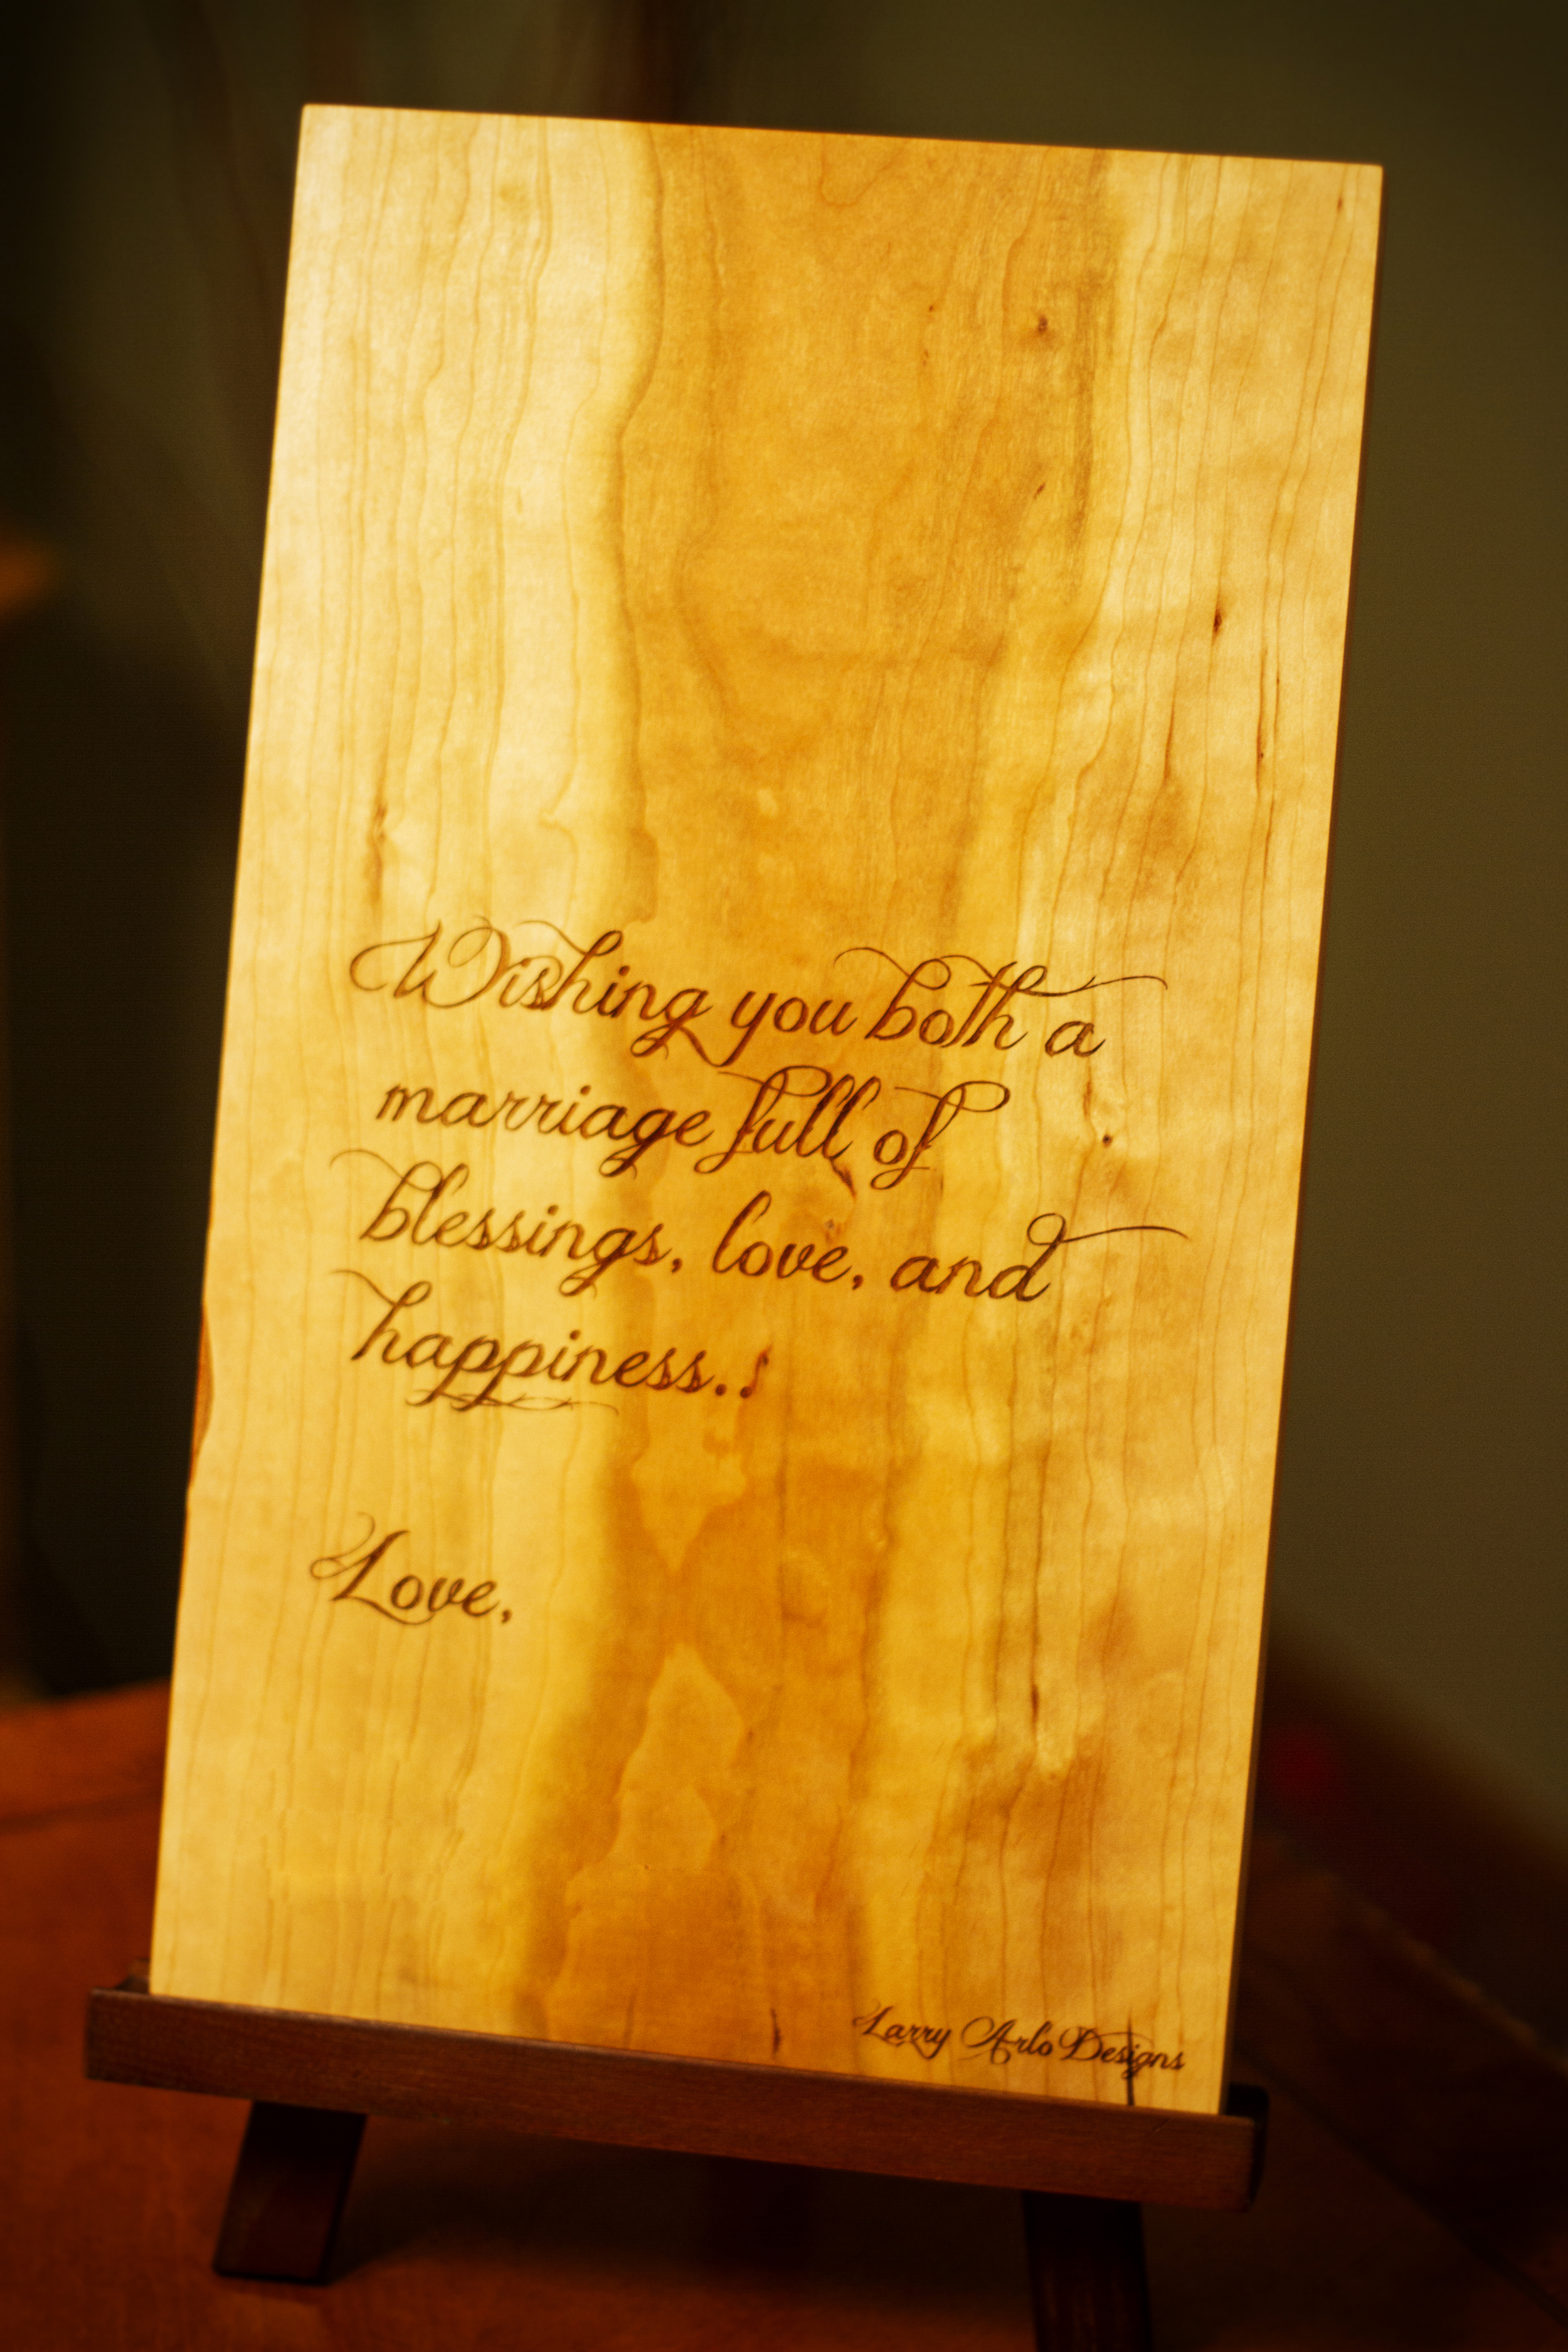 Wishing you both a
marriage full of
blessings, love, and
happiness..
Love,
Larry Arlo Designs